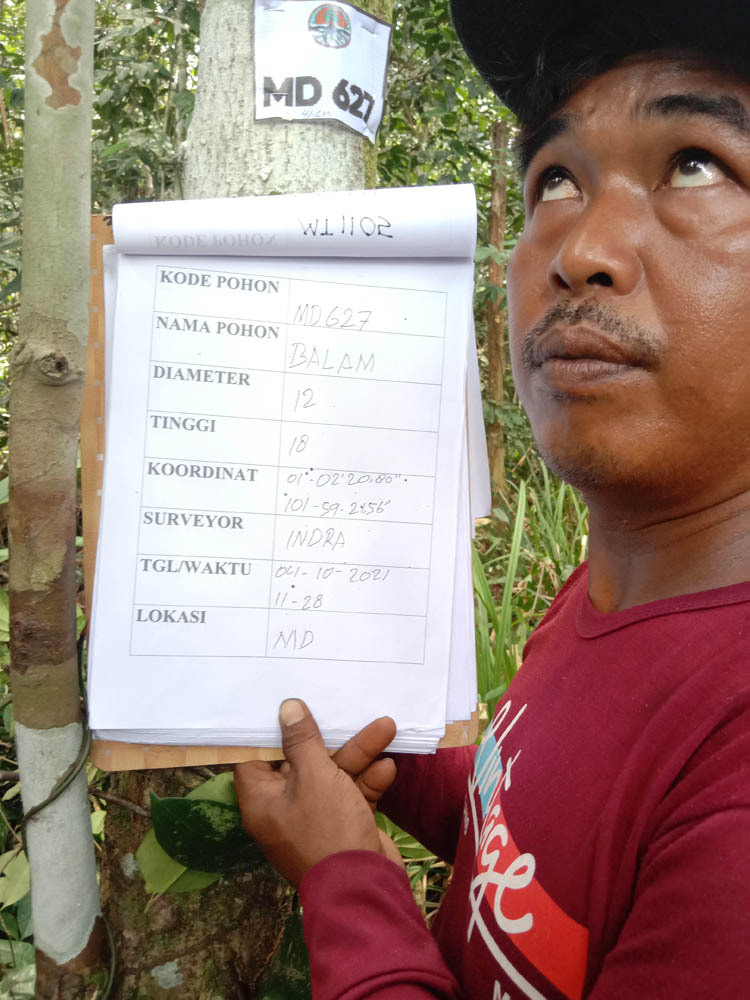 MD 627
KODE POHON
MD627
NAMA POHON
BALAM
DIAMETER
12
TINGGI
18
KOORDINAT
01°-02'20,80"
101-59-2,56"
SURVEYOR
INDRA
TGL/WAKTU
04-10-2021
11-28
LOKASI
MD